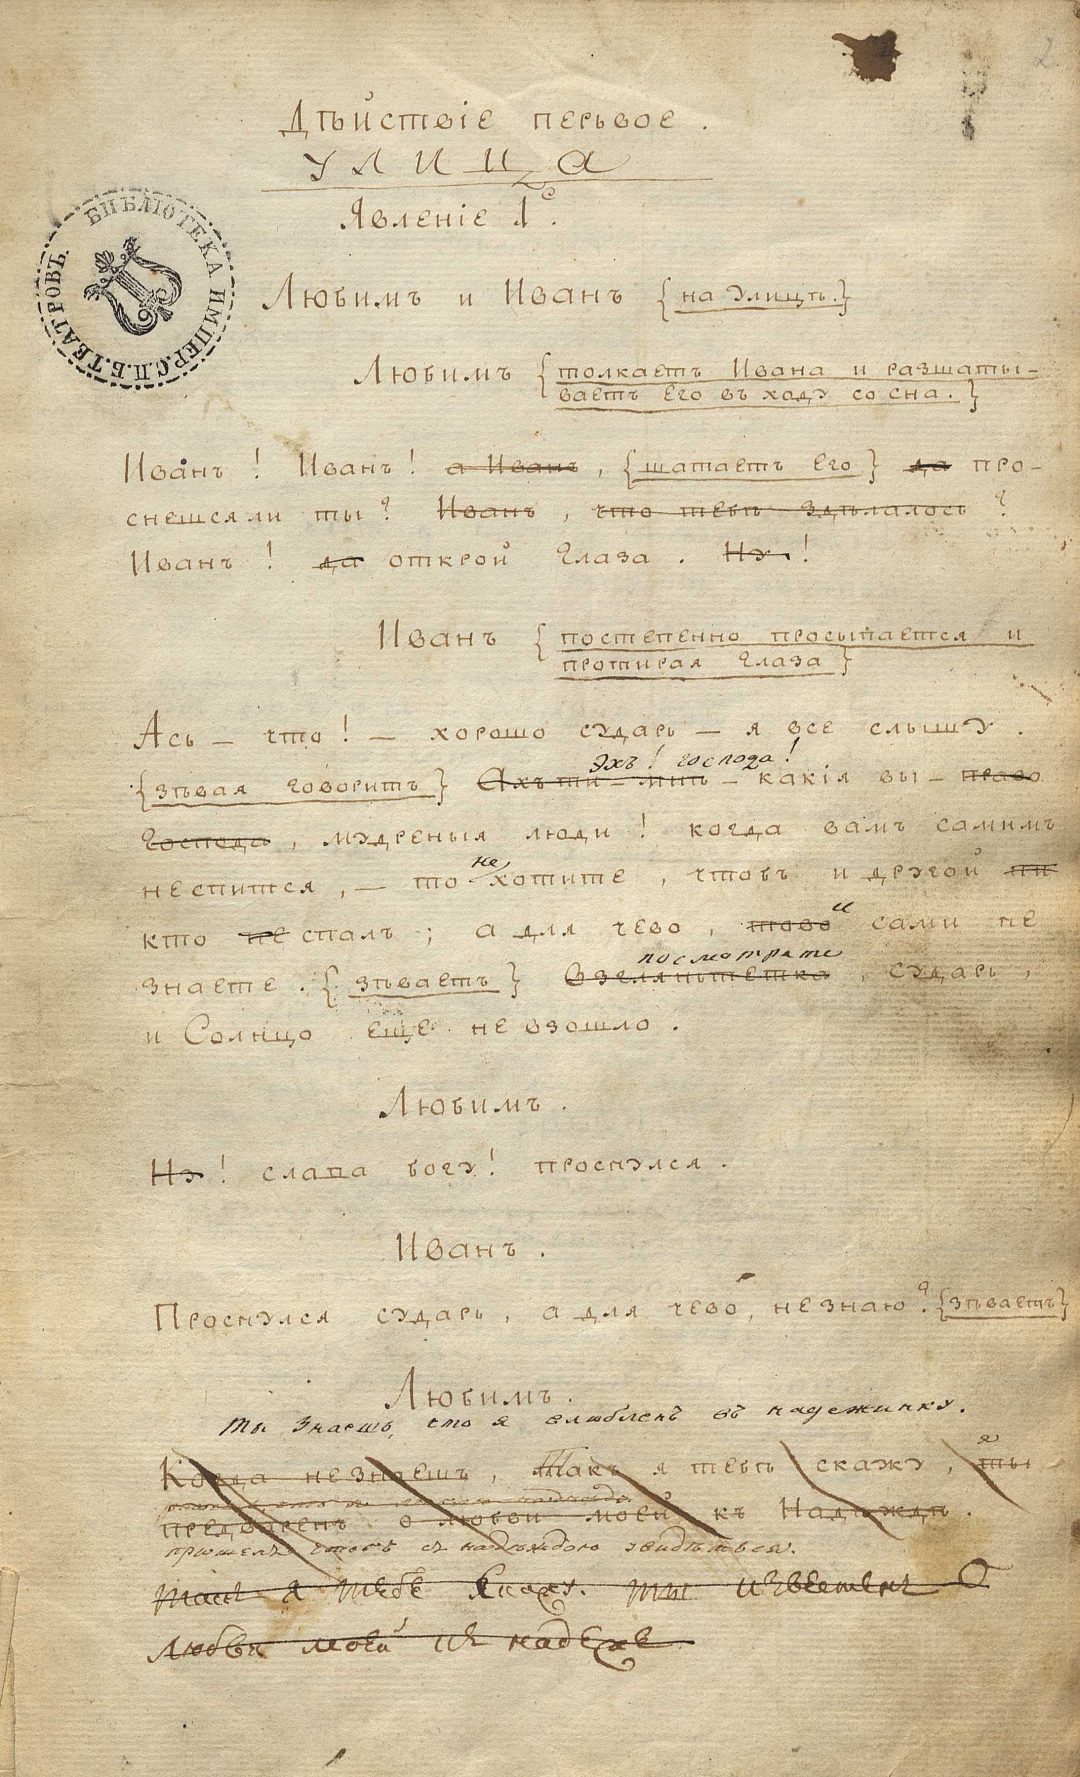 2
Дѣйствіе перьвое.
УЛИЦА
Явленіе 1е.
БИБЛІОТЕКА ИМПЕР. С.П.Б. ТЕАТРОВЪ.
Любимъ и Иванъ {на улицѣ.}
Любимъ {толкаетъ Ивана и разшаты-
ваетъ его въ ходу со сна.}
Иванъ! Иванъ! а Иванъ, {шатаетъ его} да про-
снешся ли ты? Иванъ, что тебѣ здѣлалось?
Иванъ! да открой глаза. Ну!
Иванъ {постепенно просыпается и
протирая глаза}
Ась – что! – хорошо сударь – я все слышу.
Эхъ! господа!
{зѣвая говоритъ} Ахъ ти – мнѣ – какія вы – право
Господа, мудреныя люди! когда вамъ самимъ
не
неспится, – то хотите, чтобъ и другой ни
и
кто не спалъ; а для чево, тово сами не
посмотрите
знаете. {зѣваетъ} Взгляньтешка, сударь,
и Солнцо еще не взошло.
Любимъ.
Ну! слава богу! проснулся.
Иванъ.
Проснулся сударь, а для чево, незнаю? {зѣваетъ}
Любимъ.
ты знаешь, что я влюбленъ въ надежинку.
я
Когда незнаешъ, Такъ я тебѣ скажу, ты
предваренъ о любви моей къ Надѣждѣ.
пришелъ чтобъ съ надѣждою увидѣться.
я тебе скажу. ты известенъ О
любви моей надехе